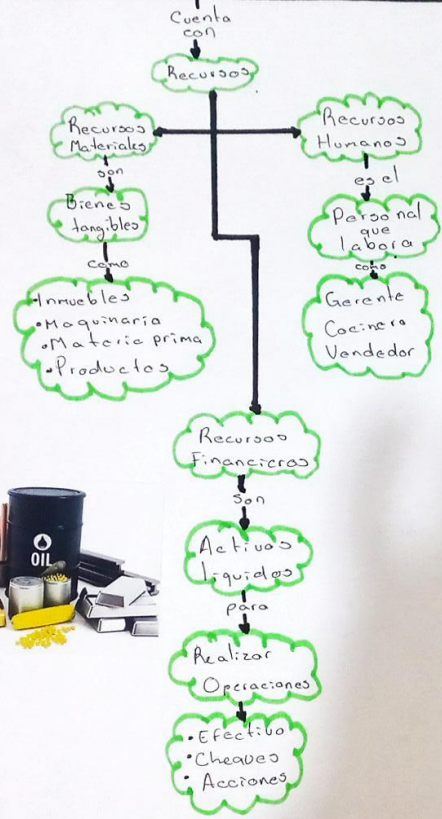 Cuenta
con
Recursos
Recursos
Materiales
son
Bienes
tangibles
como
•Inmuebles
•Maquinaria
•Materia prima
•Productos
Recursos
Humanos
es el
Personal
que
labora
como
Gerente
Cocinero
Vendedor
Recursos
Financieros
son
Activos
liquidos
para
Realizar
Operaciones
•Efectivo
•Cheques
•Acciones
OIL